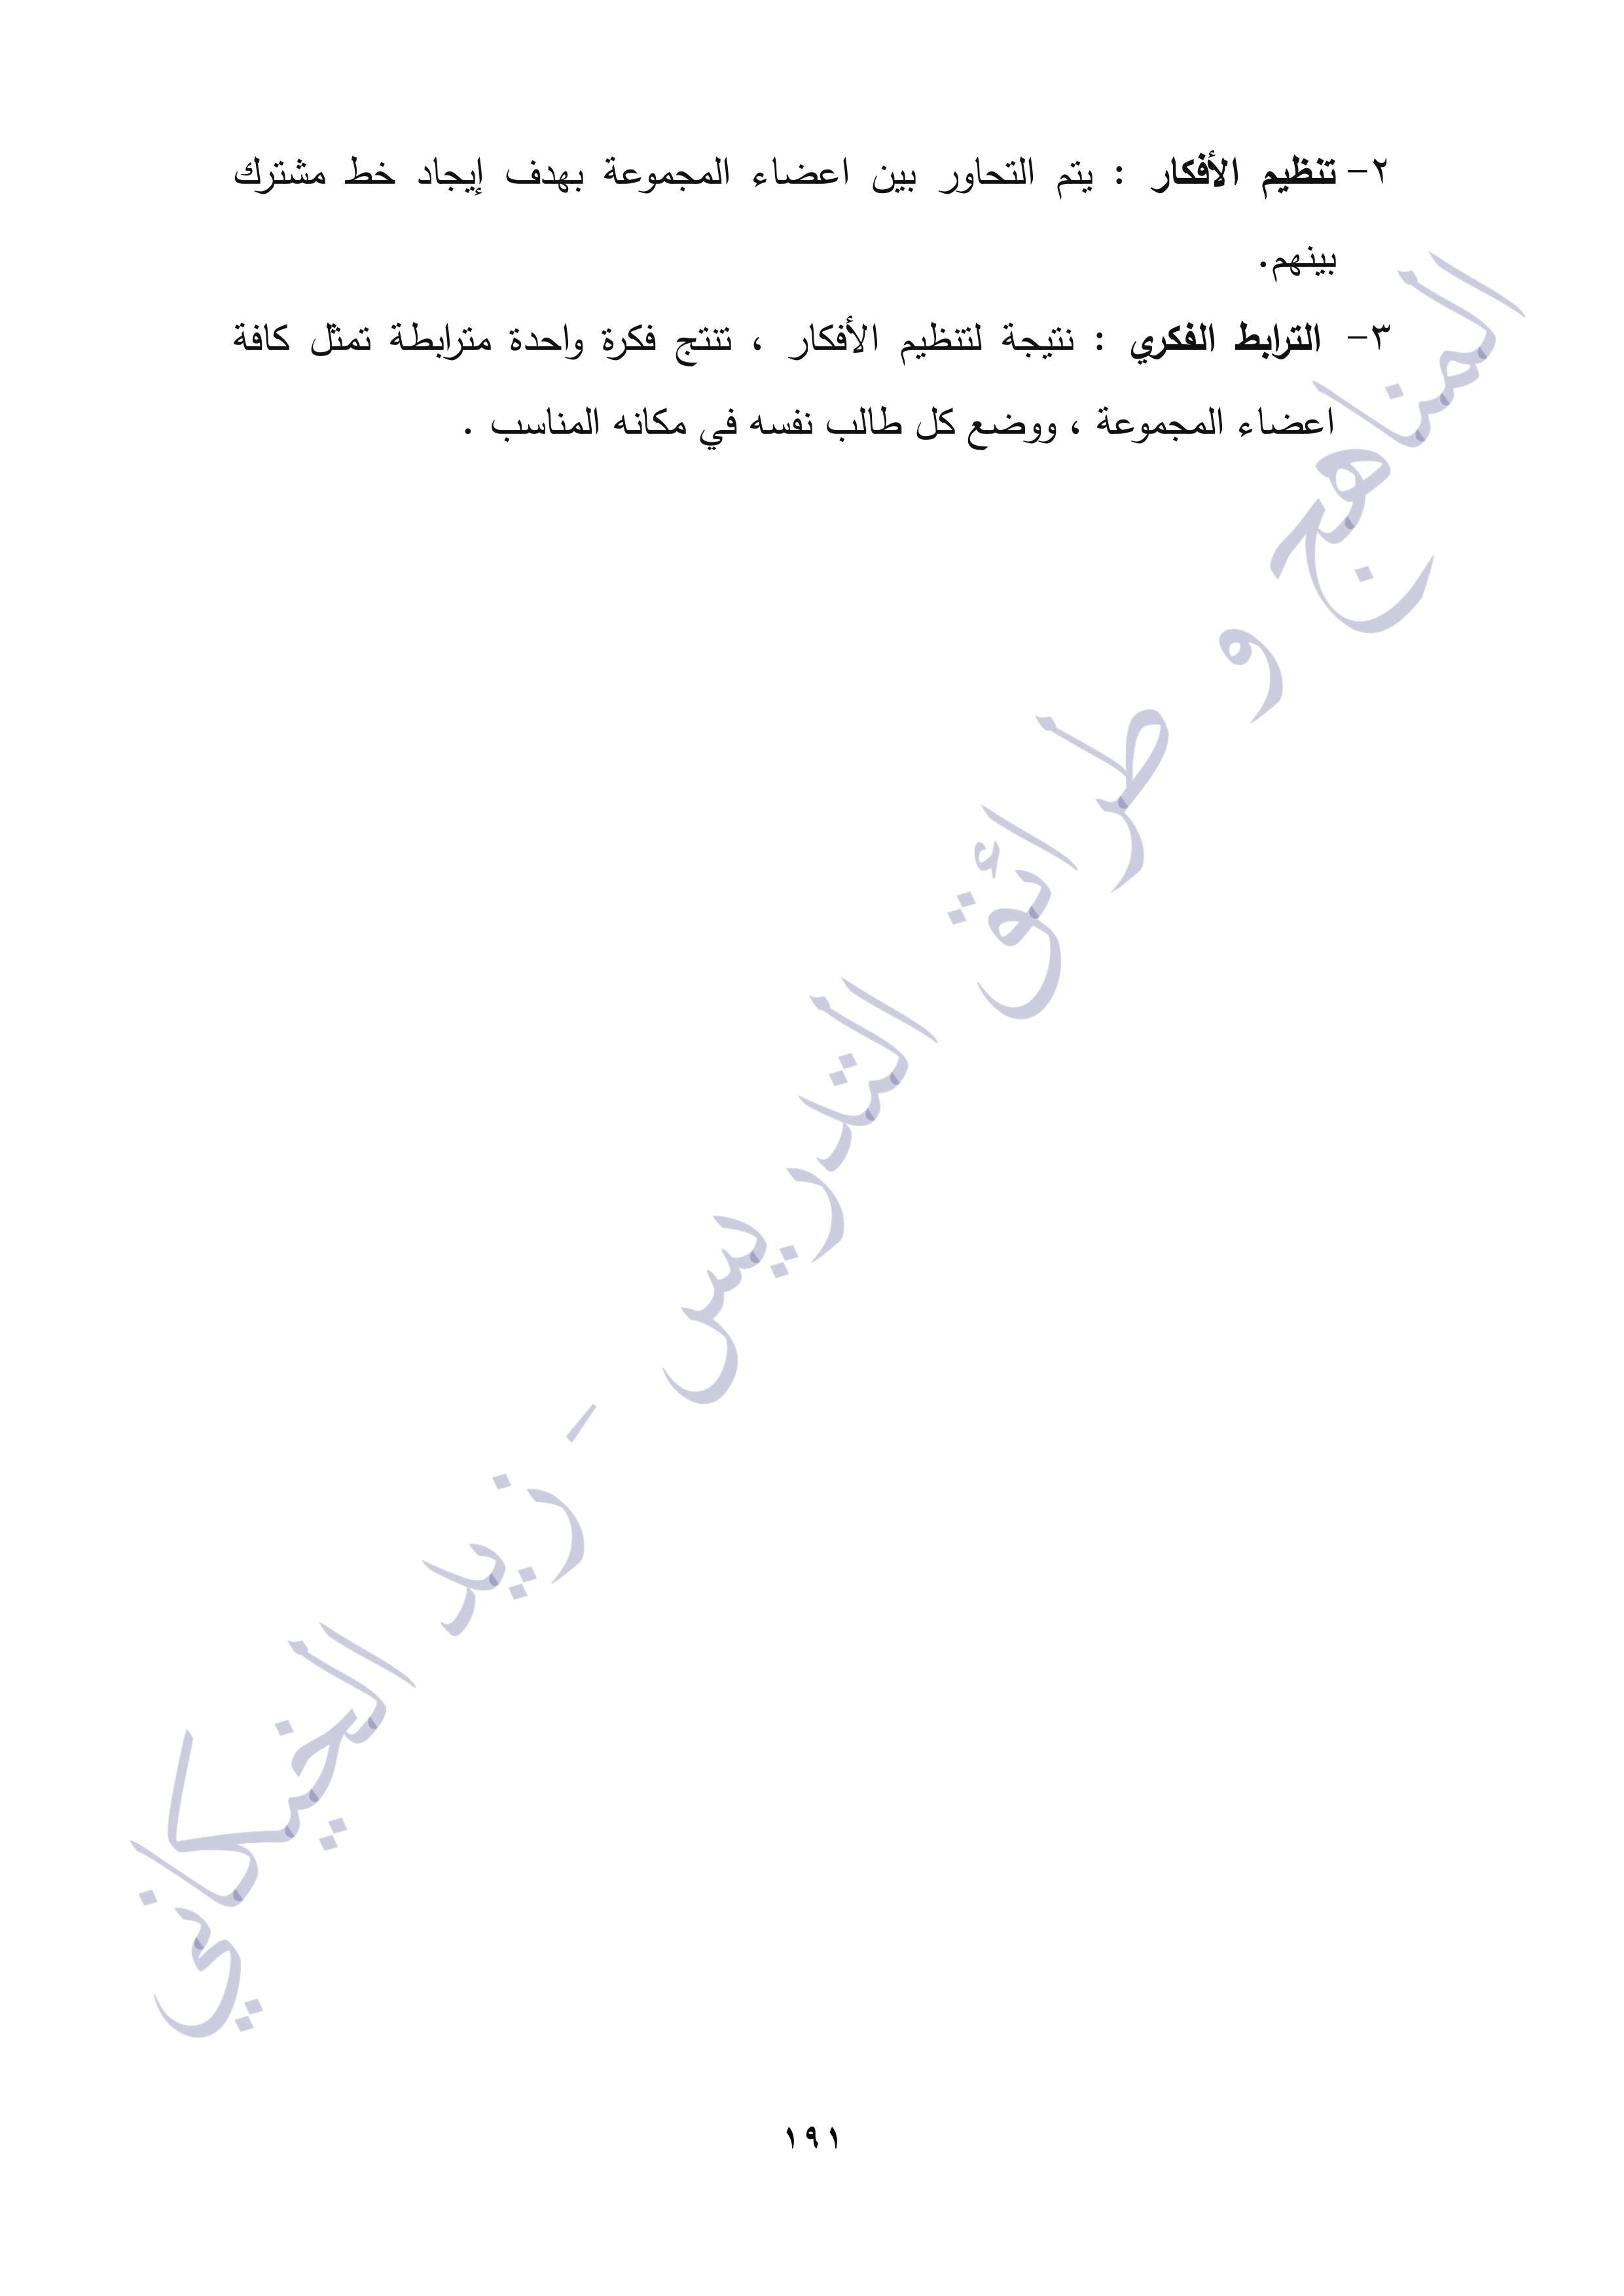 ٢- تنظيم الأفكار : يتم التحاور بين اعضاء المجموعة بهدف إيجاد خط مشترك
بينهم.
٣- الترابط الفكري : نتيجة لتنظيم الأفكار ، تنتج فكرة واحدة مترابطة تمثل كافة
اعضاء المجموعة ، ووضع كل طالب نفسه في مكانه المناسب .
المناهج و طرائق التدريس - زيد الخيكاني
١٩١